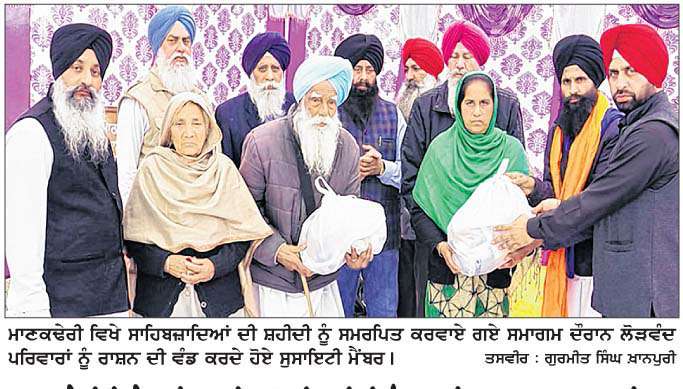 ਮਾਣਕਢੇਰੀ ਵਿਖੇ ਸਾਹਿਬਜ਼ਾਦਿਆਂ ਦੀ ਸ਼ਹੀਦੀ ਨੂੰ ਸਮਰਪਿਤ ਕਰਵਾਏ ਗਏ ਸਮਾਗਮ ਦੌਰਾਨ ਲੋੜਵੰਦ
ਪਰਿਵਾਰਾਂ ਨੂੰ ਰਾਸ਼ਨ ਦੀ ਵੰਡ ਕਰਦੇ ਹੋਏ ਸੁਸਾਇਟੀ ਮੈਂਬਰ। ਤਸਵੀਰ : ਗੁਰਮੀਤ ਸਿੰਘ ਖ਼ਾਨਪੁਰੀ